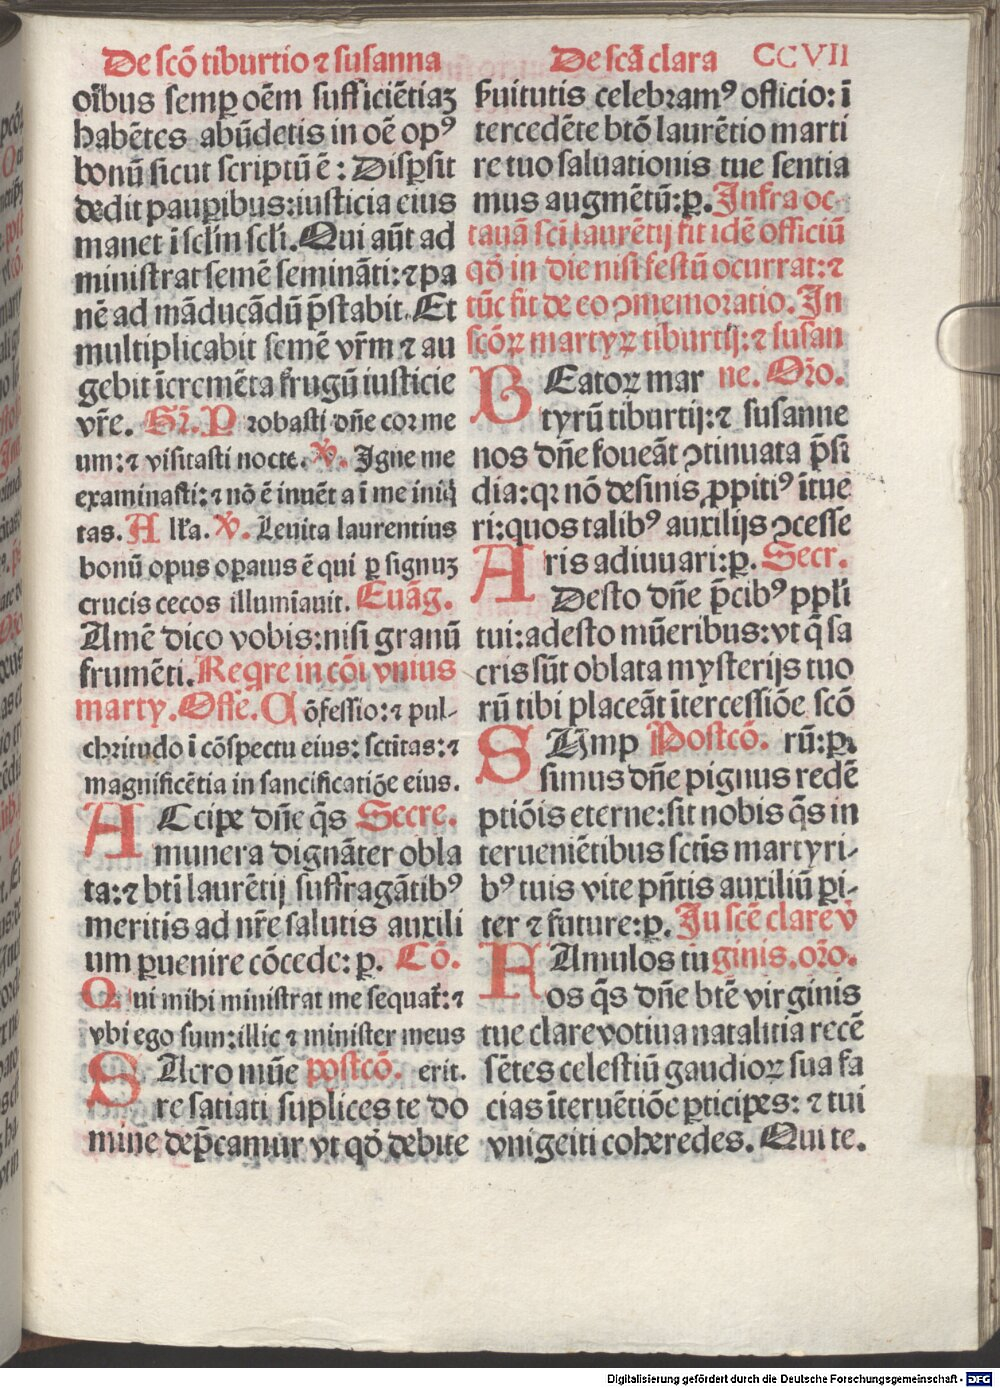 De scō tiburtio ⁊ susanna
De scā clara CCVII
oībus semꝑ oēm sufficiētiaꝫ
habētes abūdetis in oē opꝰ
bonū sicut scriptū ē: Disꝑsit
dedit pauꝑibus: iusticia eius
manet ī sclīm scłi. Qui aūt ad
ministrat semē semināti: ⁊ pa
nē ad māducādū p̄stabit. Et
multiplicabit semē vr̄m ⁊ au
gebit īcremēta frugū iusticie
vr̄e. Gr̄. Probasti dn̄e cor me
um: ⁊ visitasti nocte. ℣. Igne me
examinasti: ⁊ nō ē inuēta ī me iniq̇
tas. Alła. ℣. Leuita laurentius
bonū opus oꝑatus ē qui ꝑ signuꝫ
crucis cecos illumīauit. Euāg.
Amē dico vobis: nisi granū
frumēti. Reqre in cōi vnius
marty. Offe. Cōfessio: ⁊ pul-
chritudo ī cōspectu eius: sctitas: ⁊
magnificētia in sancificatiōe eius.
ACcipe dn̄e q̄s Secre.
munera dignāter obla
ta: ⁊ bti laurētij suffragātibꝰ
meritis ad nr̄e salutis auxili
um ꝑuenire cōcede: ꝑ. Cō.
Qui mihi ministrat me sequať: ⁊
vbi ego sum: illic ⁊ minister meus
SAcro mūe postcō. erit.
re satiati suplices te do
mine dep̄camur vt qō debite
ẜuitutis celebramꝰ officio: ī
tercedēte btō laurētio marti
re tuo saluationis tue sentia
mus augmētū: ꝑ. Infra oc-
tauā sci laurētij fit idē officiū
qō in die nisi festū ocurrat: ⁊
tūc fit de eo ↄmemoratio. In
scōꝝ martyꝝ tiburtij: ⁊ susan
BEatoꝝ mar ne. Or̄o.
tyrū tiburtij: ⁊ susanne
nos dn̄e foueāt ↄtinuata p̄si
dia: qꝛ nō desinis ꝓpitiꝰ ītue
ri: quos talibꝰ auxilijs ↄcesse
Aris adiuuari: ꝑ. Secr.
Desto dn̄e p̄cibꝰ ppłi
tui: adesto mūeribus: vt q̄ sa
cris sūt oblata mysterijs tuo
rū tibi placeāt ītercessiōe scō
SUmp Postcō. rū: ꝑ.
simus dn̄e pignus redē
ptiōis eterne: sit nobis q̄s in
terueniētibus sctīs martyri-
bꝰ tuis vite pn̄tis auxiliū ꝑi-
ter ⁊ future: ꝑ. In scē clare v̄
FAmulos tu ginis. or̄o.
os q̄s dn̄e btē virginis
tue clare votiua natalitia recē
sētes celestiū gaudioꝝ sua fa
cias īteruētiōe ꝑticipes: ⁊ tui
vnigeiti coheredes. Qui te.
Digitalisierung gefördert durch die Deutsche Forschungsgemeinschaft - DFG